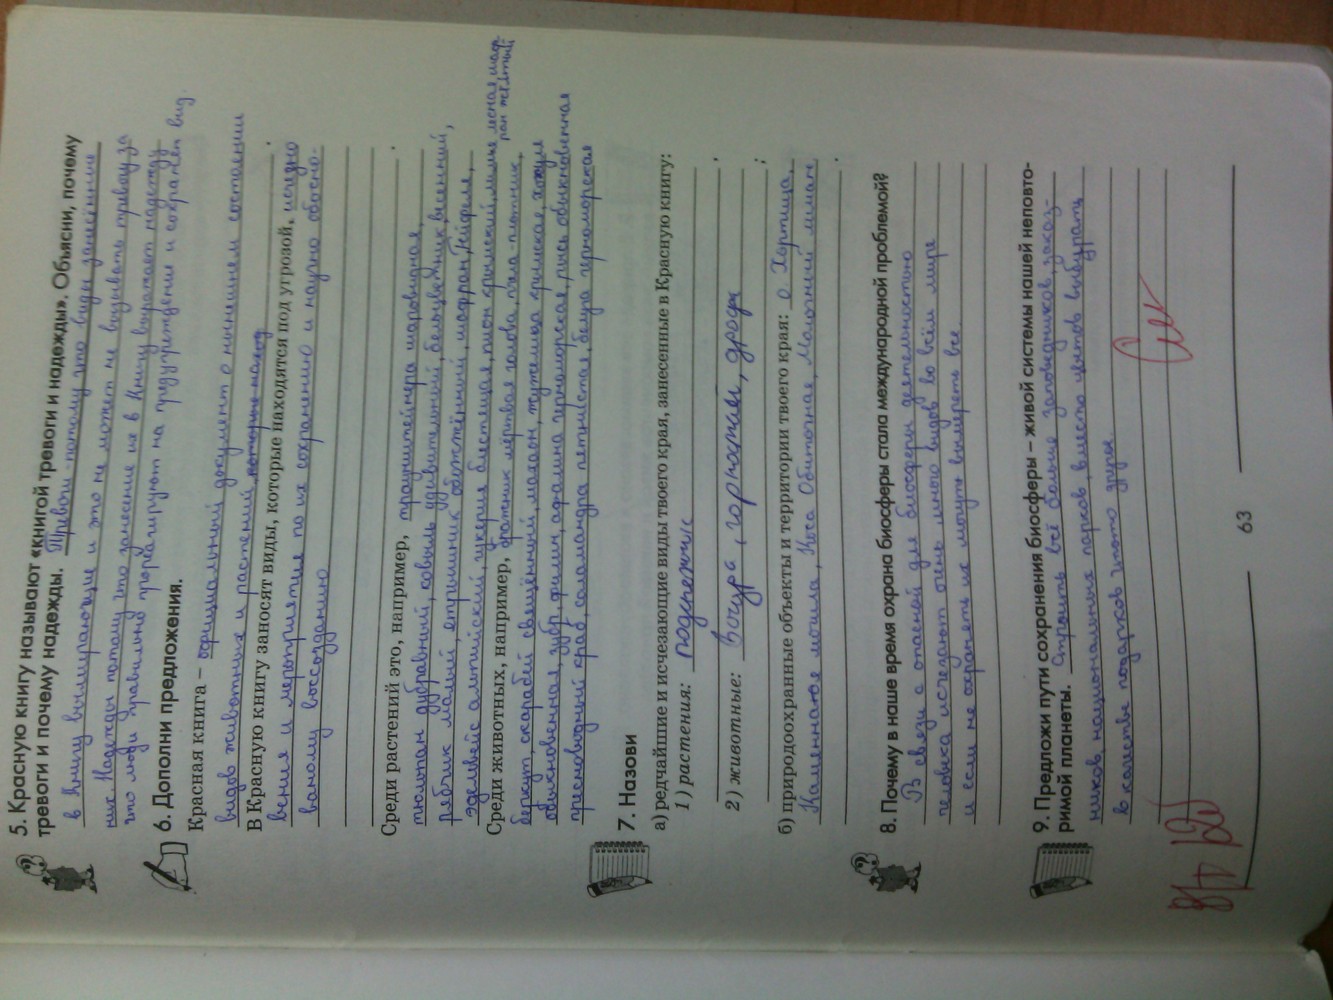 5. Красную книгу называют «книгой тревоги и надежды». Объясни, почему
тревоги и почему надежды. Тревоги - потому что виды занесённые
в Книгу вымирающие и это не может не вызывать тревогу за
них. Надежды потому что занесение их в Книгу выражает надежду
что люди правильно прореагируют на предупреждение и сохранят вид.
6. Дополни предложения.
Красная книга – официальный документ о нынешнем состоянии
видов животных и растений, которые наход
.
В Красную книгу заносят виды, которые находятся под угрозой, исчезно
вения и мероприятия по их сохранению и научно обосно-
ваному воссозданию
.
Среди растений это, например, траунштейнера шаровидная,
тюльпан дубравный, ковыль удивительный, белоцветник весенний,
рябчик малый, ятрышник обожжённый, шафран Гейфеля,
эдельвейс альпийский, цукерия блестящая, пион крымский, лилия лесная, шаф-
ран жёлтый
Среди животных, например, бражник мёртвая голова, пчела-плотник,
беркут, скарабей священный, махаон, жужелица крымская, хохуля
обыкновенная, зубр, филин, афалина черноморская, рысь обыкновенная
пресноводный краб, саламандра пятнистая, белуга черноморская
7. Назови
а) редчайшие и исчезающие виды твоего края, занесенные в Красную книгу:
1) растения: подснежник
,
2) животные: горностай, дрофа
;
б) природоохранные объекты и территории твоего края: о. Хортица,
Каменная могила, Коса Обиточная, Молочный лиман
.
8. Почему в наше время охрана биосферы стала международной проблемой?
В связи с опасной для биосферы деятельностью
человека исчезают очень много видов во всём мире
и если не охранять их могут вымереть все.
9. Предложи пути сохранения биосферы – живой системы нашей неповто-
римой планеты. Строить всё больше заповедников, заказ-
ников, национальных парков, вместо цветов выбирать
в качестве подарков чтото другое.
63